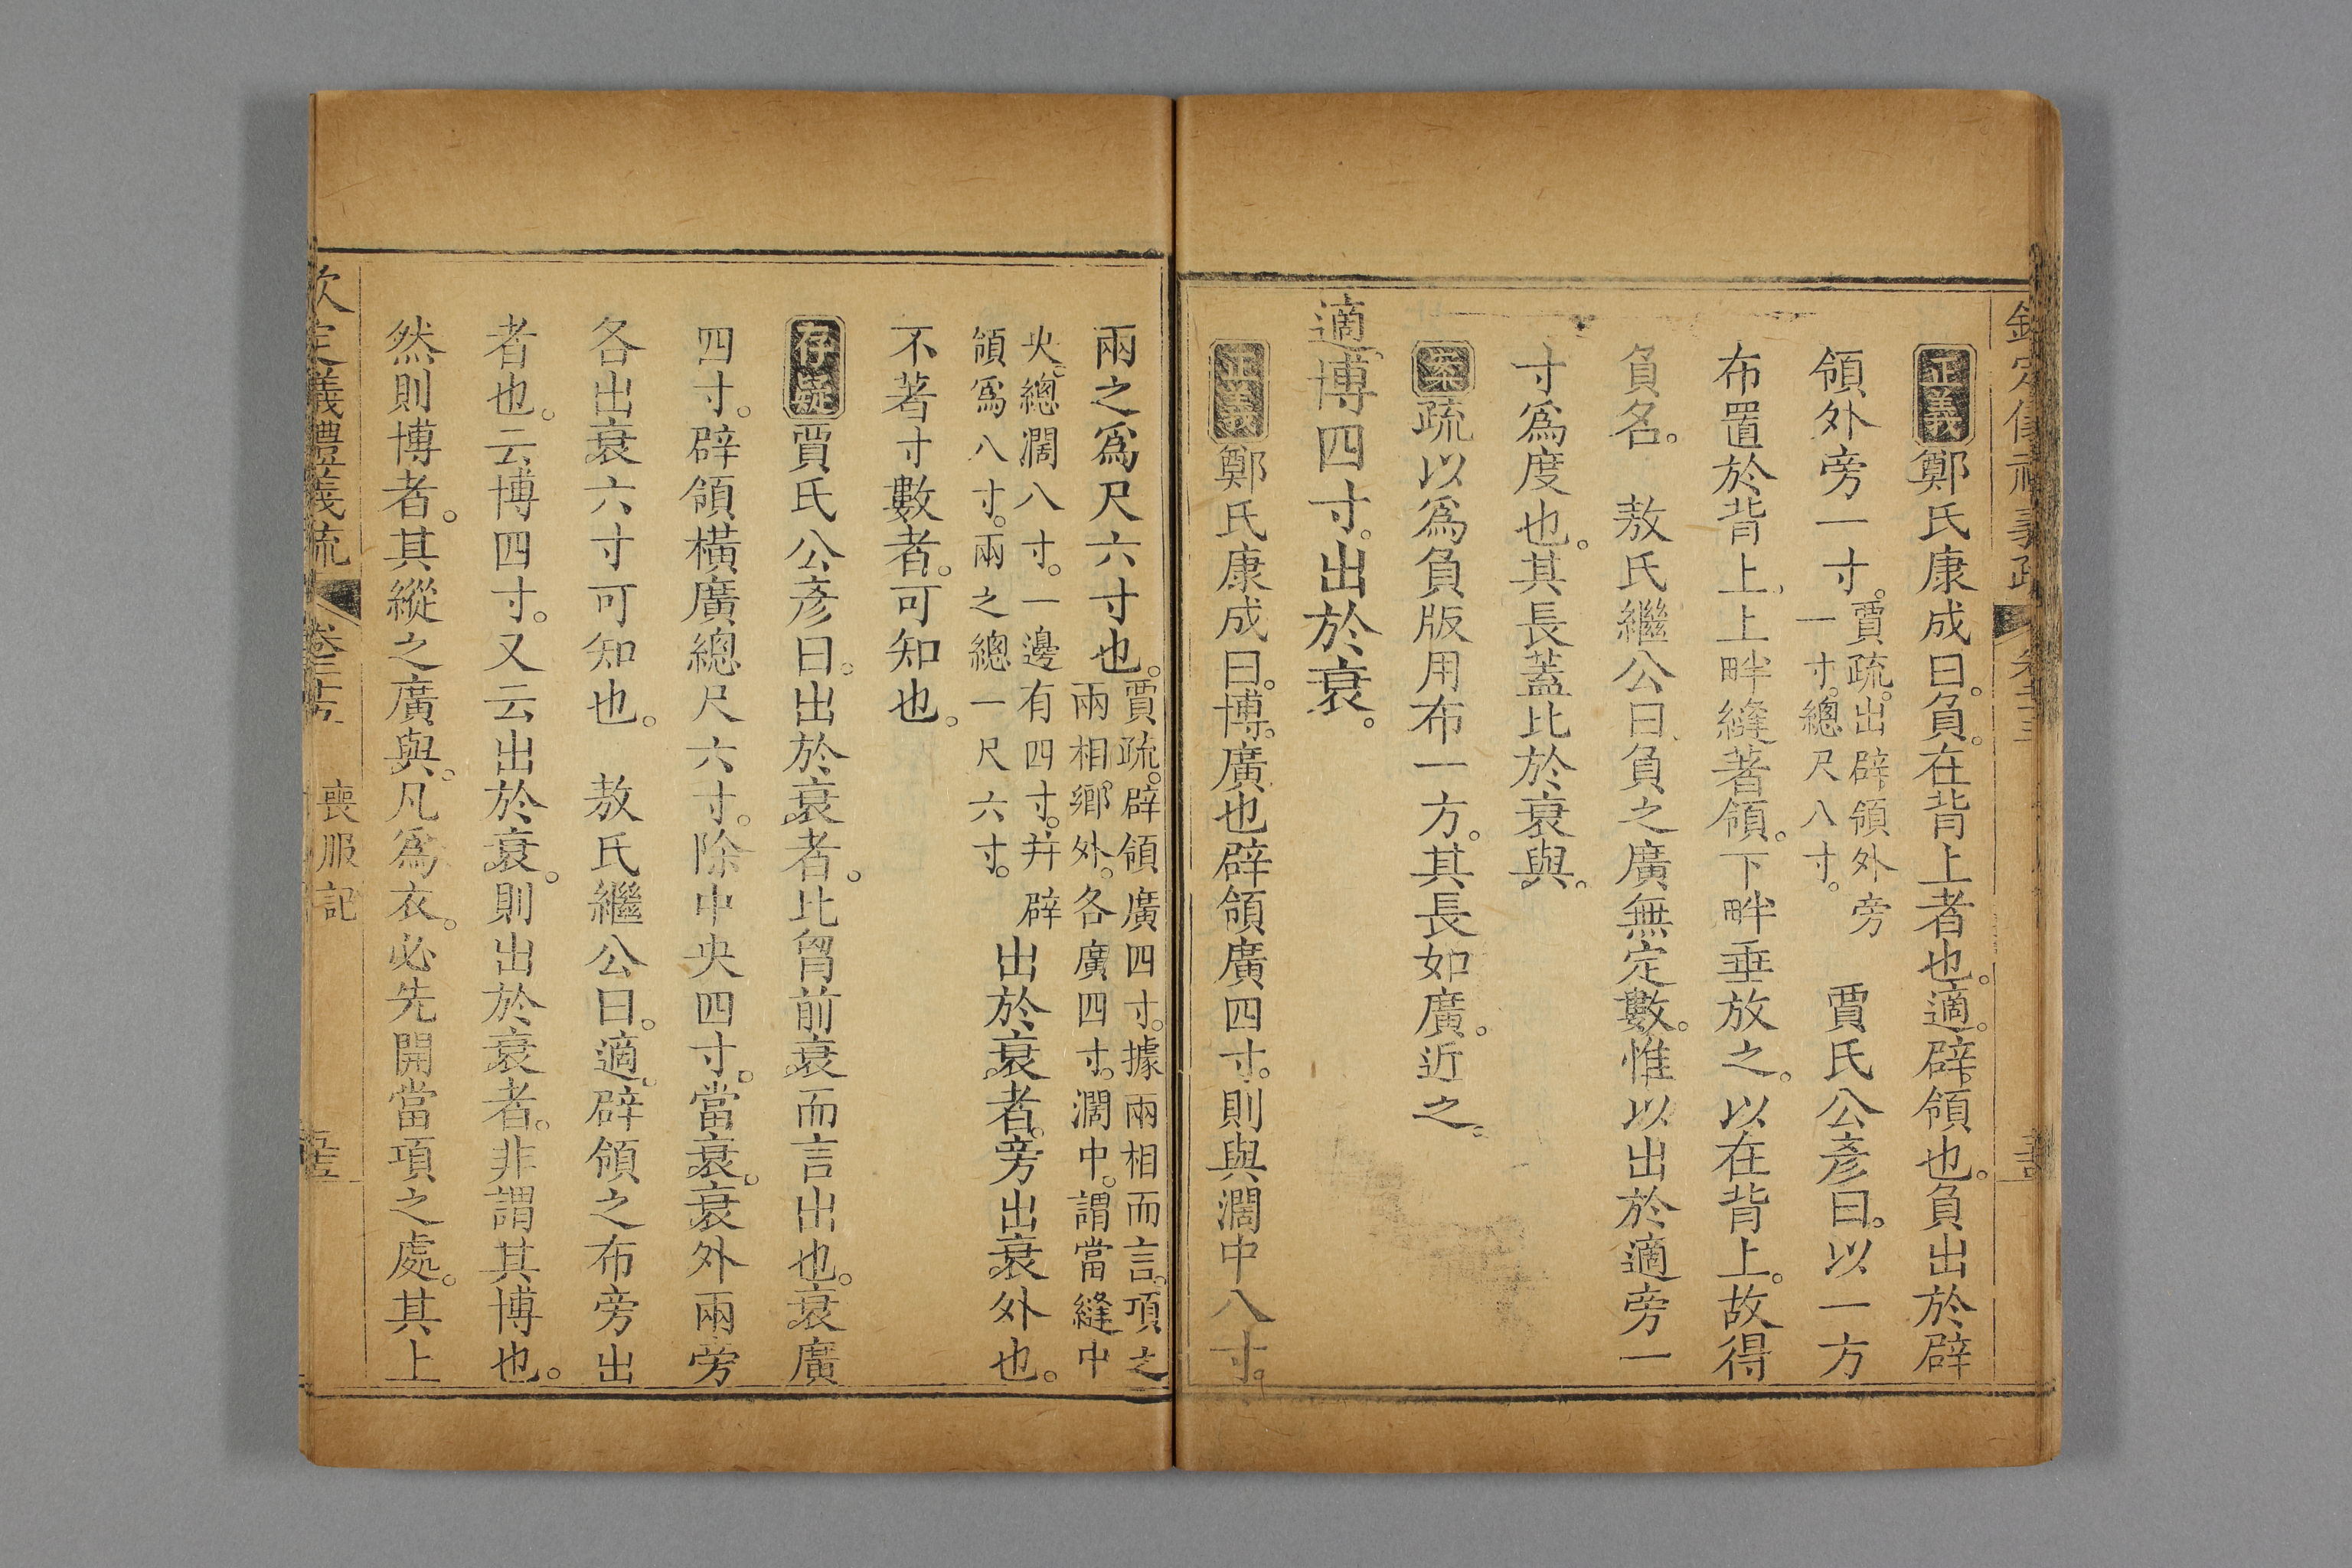 正義鄭氏康成曰。負。在背上者也。適。辟領也。負出於辟
領外旁一寸。賈疏。出辟領外旁
一寸。總尺八寸。
賈氏公彥曰。以一方
布置於背上、上畔縫著領。下畔垂放之。以在背上。故得
負名。 敖氏繼公曰負之廣無定數。惟以出於適旁一
寸爲度也。其長蓋比於衰與。
案疏以爲負版用布一方。其長如廣。近之。
適。博四寸。出於衰。
正義鄭氏康成曰。博。廣也辟領廣四寸。則與濶中八寸。
兩之爲尺六寸也。賈疏。辟領廣四寸。據兩相而言。項之
兩相鄉外。各廣四寸。濶中。謂當縫中
央。總濶八寸。一邊有四寸。并辟
領爲八寸。兩之總一尺六寸。
出於衰者。旁出衰外也。
不著寸數者。可知也。
存疑賈氏公彥曰。出於衰者。比胷前衰而言出也。衰廣
四寸。辟領橫廣總尺六寸。除中央四寸。當衰。衰外兩旁
各出衰六寸可知也。 敖氏繼公曰。適。辟領之布旁出
者也。云博四寸。又云出於衰。則出於衰者。非謂其博也。
然則博者。其縱之廣與。凡爲衣。必先開當項之處。其上
喪服記